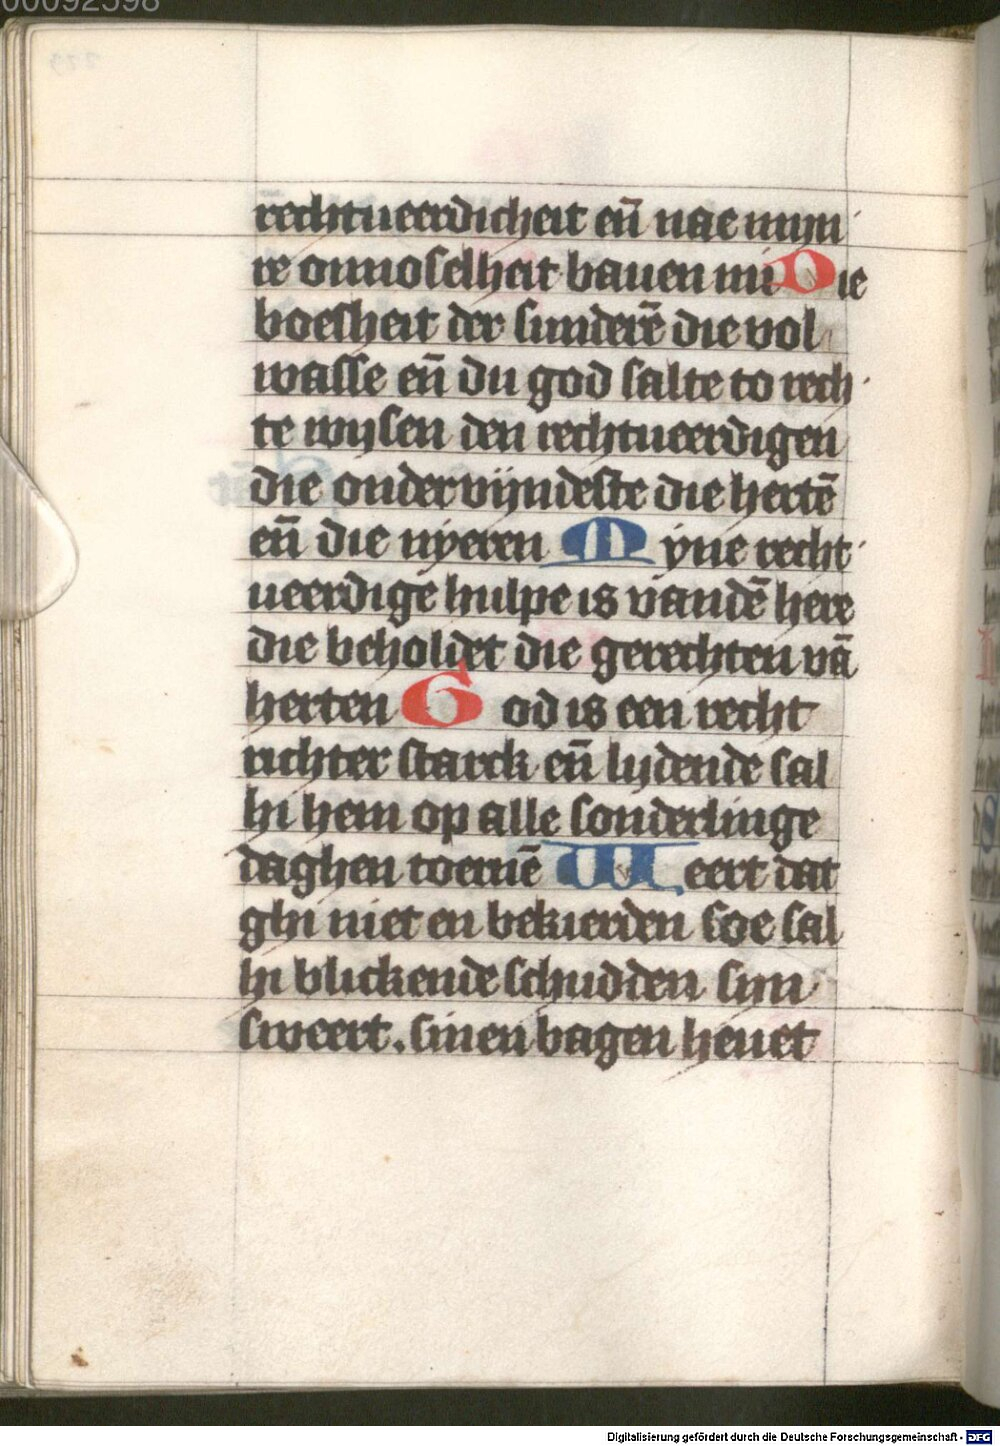 00092598
rechtueerdicheit eñ nae mijn
re onnoselheit bauen mi Die
boesheit der sunderẽ die vol
wasse eñ du god salte to rech
te wijsen den rechtueerdigen
die ondervijndeste die hertẽ
eñ die nyeren Myne recht
ueerdige hulpe is vandẽ here
die beholdet die gerechten vã
herten God is een recht
richter starck eñ lijdende sal
hi hem op alle sonderlinge
daghen toernẽ Weert dat
ghi niet en bekierden soe sal
hi blickende schudden sijn
sweert. sinen bagen heuet
Digitalisierung gefördert durch die Deutsche Forschungsgemeinschaft - DFG